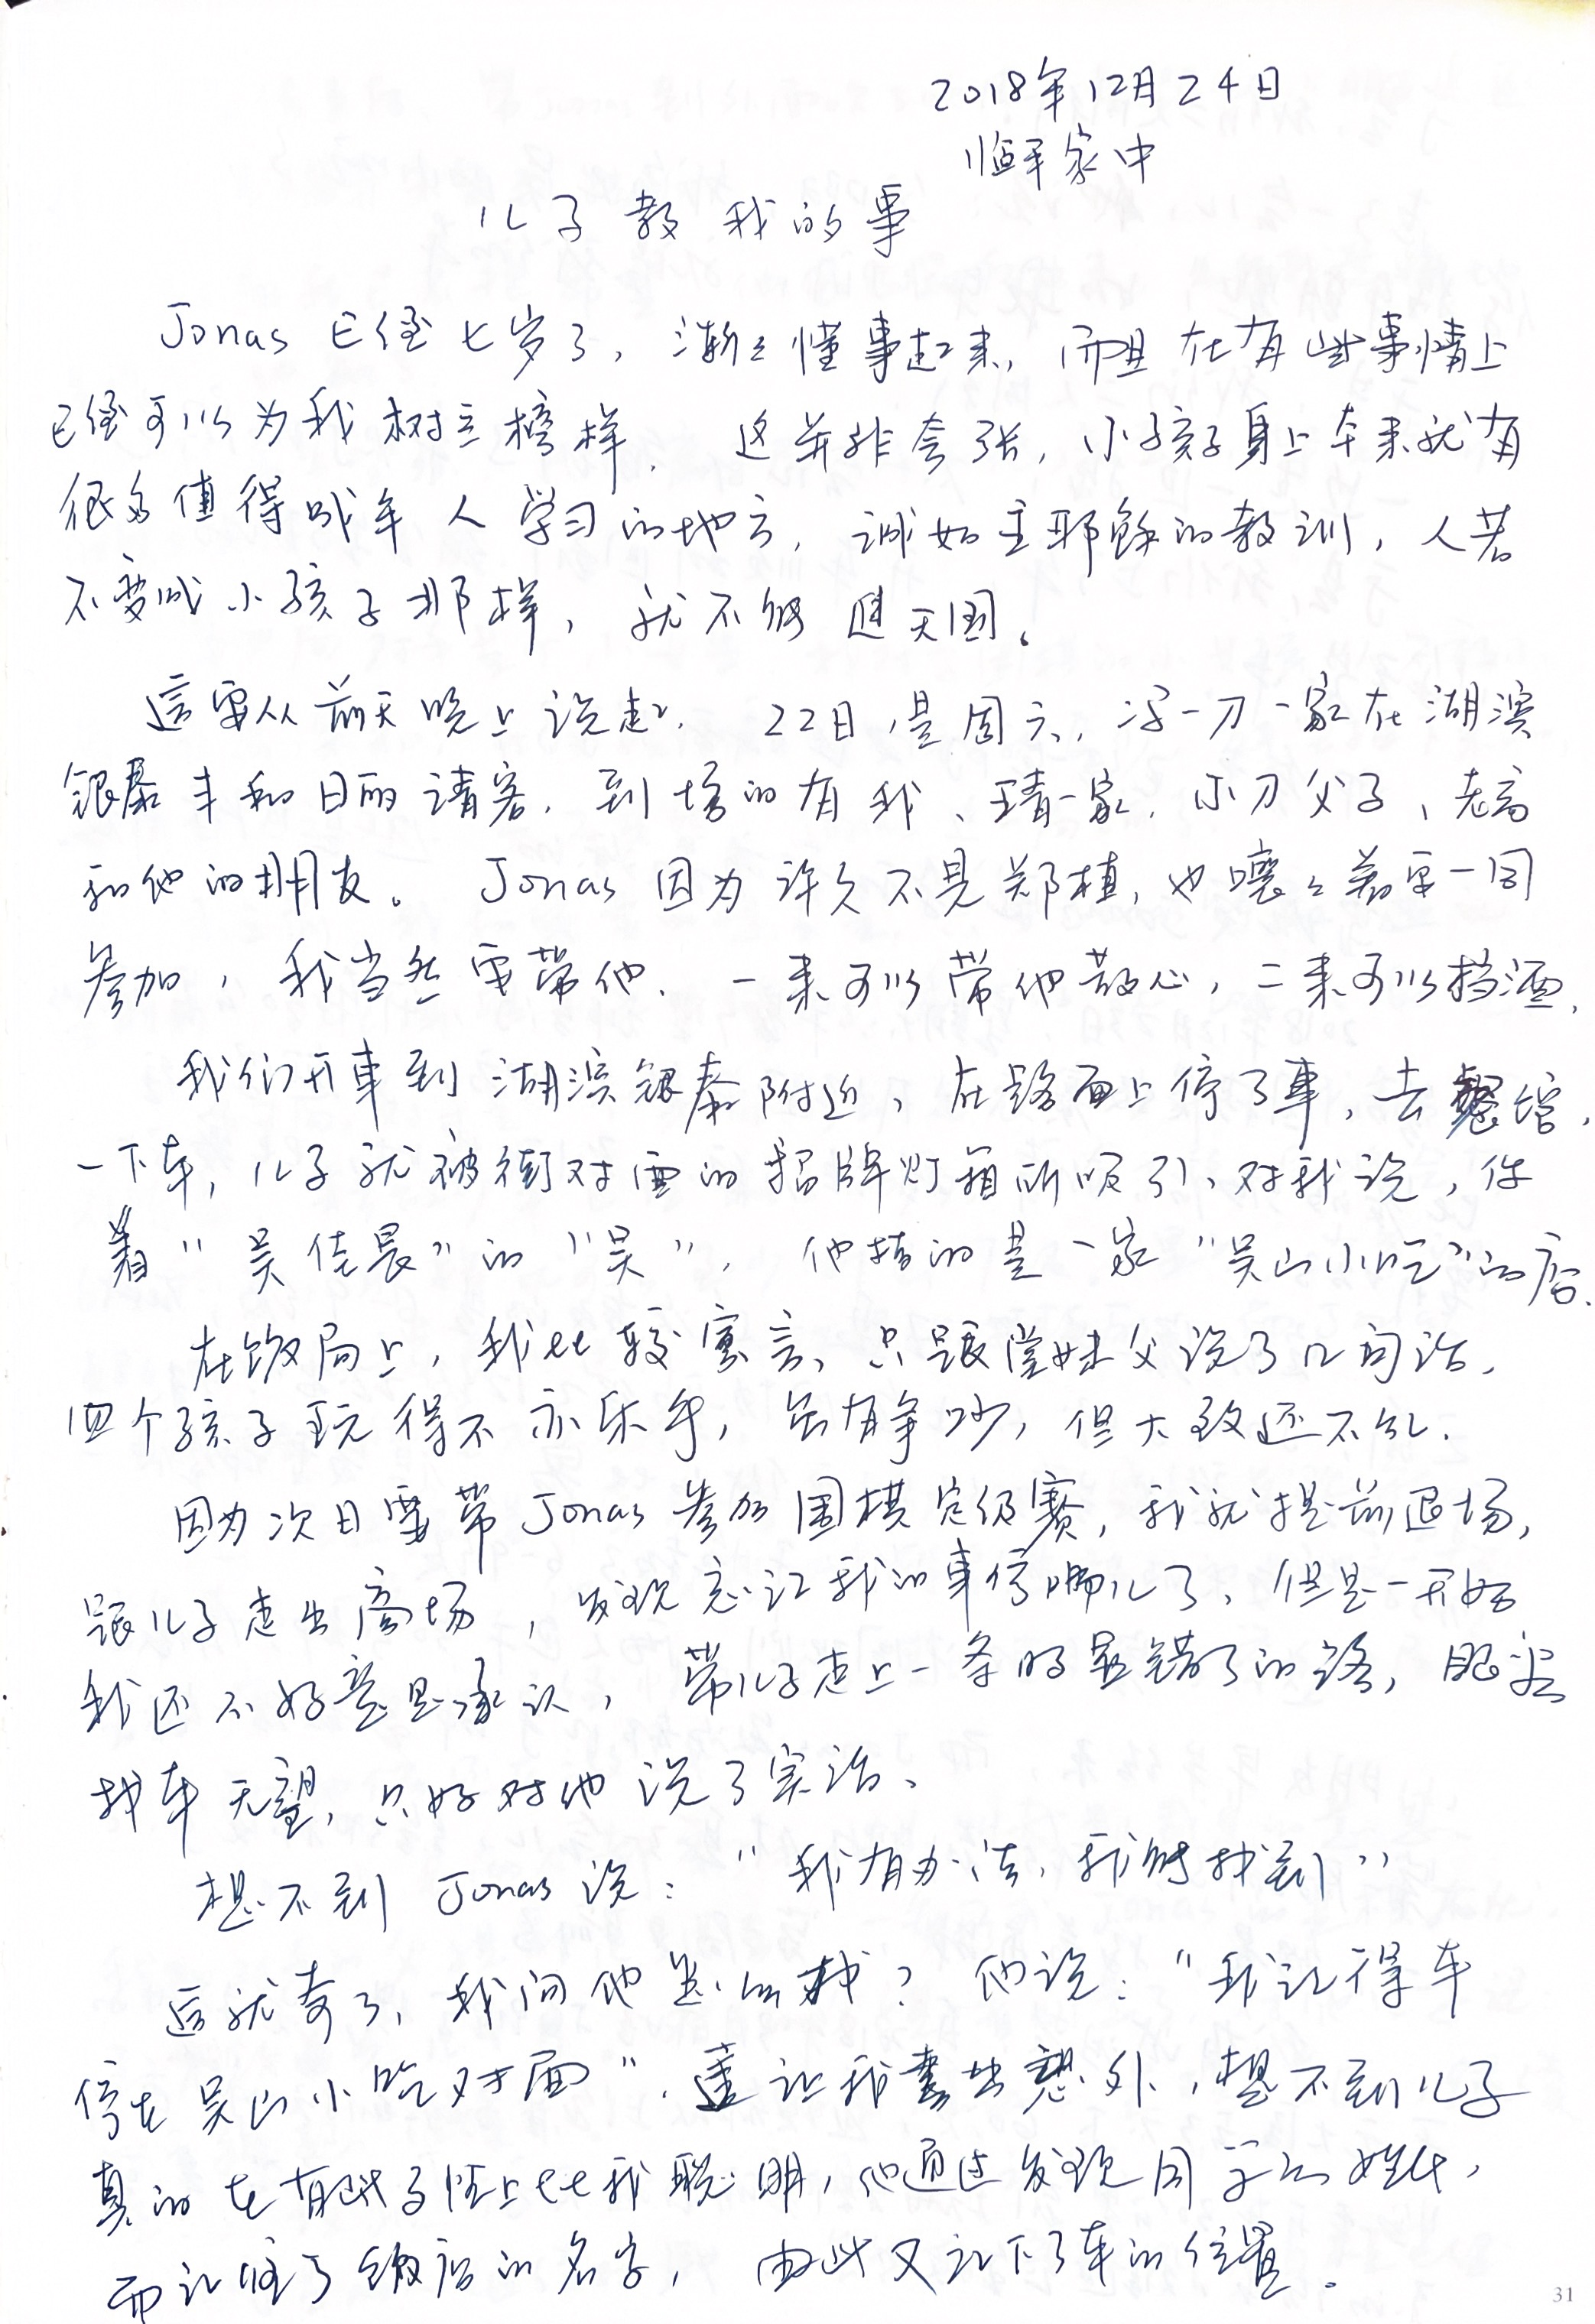 2018年12月24日
临平家中
儿子教我的事
Jonas已经七岁了，渐々懂事起来，而且在有些事情上
已经可以为我树立榜样。这并非夸张，小孩子身上本来就有
很多值得成年人学习的地方，诚如主耶稣的教训，人若
不变成小孩子那样，就不能進天国。
這要从前天晚上说起。22日是周六，一刀一家在湖滨
银泰丰和日丽请客，到场的有我、靖一家，小刀父子、老高
和他的朋友。Jonas因为许久不見郑植，也嚷々着要一同
参加，我当然要带他。一来可以带他散心，二来可以挡酒。
我们开車到湖滨银泰附近，在路面上停了車，去餐馆，
一下车，儿子就被街对面的招牌灯箱所吸引，对我说，你
看“吴佳晨”的“吴”，他指的是一家“吴山小吃”的店。
在饭局上，我比较寡言，只跟堂妹父说了几句话，
四个孩子玩得不亦乐乎，虽有争吵，但大致还不乱。
因为次日要带Jonas参加围棋定级赛，我就提前退场，
跟儿子走出商场，发现忘记我的車停哪儿了，但是一开始
我还不好意思承认，带儿子走上一条明显错了的路，眼看
找车无望，只好对他说了实话。
想不到Jonas说：“我有办法，我能找到”
這就奇了，我问他怎么找？他说：“我记得车
停在吴山小吃对面”。這让我意出想外，想不到儿子
真的在有些事情上比我聪明，他通过发现同学的姓氏，
而记住了饭店的名字，由此又记下了车的位置。
31